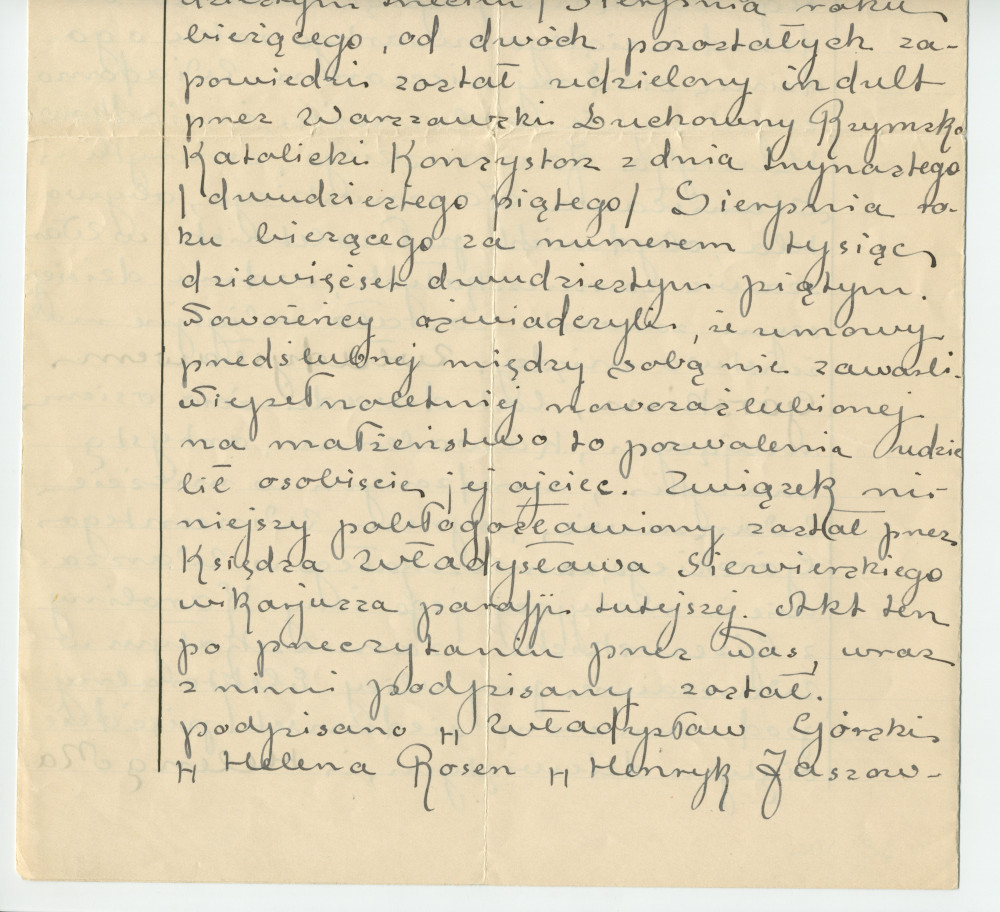 dziestym trzecim / Sierpnia roku
bieżącego, od dwóch pozostałych za-
powiedzi został udzielony indult
przez Warszawski Duchowny Rzymsko
Katolicki Konsystorz z dnia trzynastego
/ dwudziestego piątego / Sierpnia ro-
ku bieżącego za numerem tysiąc
dziewięćset dwudziestym piątym.
Nowożeńcy oświadczyli, że umowy
przedślubnej między sobą nie zawarli.
Niepełnoletniej nowozaślubionej
na małżeństwo to pozwalenia udzie
lił osobiście jej ojciec. Związek ni-
niejszy pobłogosławiony został przez
Księdza Władysława Siewierskiego
wikarjusza parafji tutejszej. Akt ten
po przeczytaniu przez Nas, wraz
z nimi podpisany został.
podpisano „ Władysław Górski
„ Helena Rosen „ Henryk Jaszow-